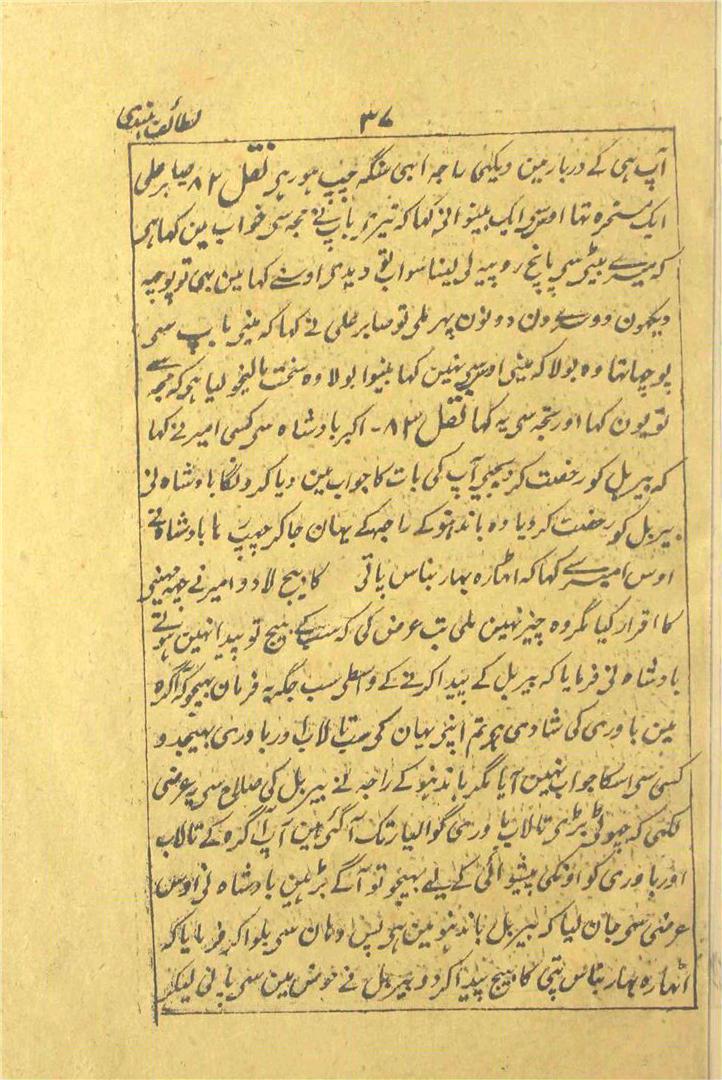 لطائف ہندی
۳۷
آپ ہی کے دربار مین دیکہی راجہ ابہی سنگہ چپ ہو رہی نقل ۸۲ صابر علی
ایک مسخرہ تہا اوسی ایک بینوا نی کہا کہ تیری باپ نے مجہ سی خواب مین کہا ہی
کہ میرے بیٹی سی پانچ روپیہ لی لینا سو اب تو دیدی اوسنے کہا مین بہی تو پوچہ
دیکہون دوسرے دن دونون پہر ملی تو صابر علی نے کہا کہ مینی باپ سی
پوچہا تہا وہ بولا کہ مینی اوسی نہین کہا بینوا بولا وہ سخت مالیخولیا ہی کہ مجہ سے
تو یون کہا اور تجہ سی یہ کہا نقل ۸۳ - اکبر بادشاہ سی کسی امیر نے کہا
کہ بیربل کو رخصت کر دیجیی آپ کی بات کا جواب مین دیا کرونگا بادشاہ نی
بیربل کو رخصت کر دیا وہ باندہو کے راجہ کے یہان جا کر چہپ رہا بادشاہ نے
اوس امیر سے کہا کہ اٹہارہ بہار بناس پاتی کا بیج لا دو امیر نے چہہ مہینی
کا اقرار کیا مگر وہ چیز نہین ملی تب عرض کی کہ سب کے بیج تو پیدا نہین ہوتے
بادشاہ نی فرمایا کہ بیربل کے پیدا کرنے کے واسطی سب جگہ یہ فرمان بہیجو کہ آگرہ
مین باوری کی شادی ہی تم اپنی یہان کی سب تالاب اور باوری بہیجدو
کسی سی اسکا جواب نہین آیا مگر باندہو کے راجہ نے بیربل کی صلاح سی یہ عرضی
لکہی کہ چہوٹی بڑی تالاب باوری گوالیار تک آ گئی ہین آپ آگرہ کے تالاب
اور باوری کو اونکی پیشوائی کے لیے بہیجو تو آگے بڑہین بادشاہ نی اوس
عرضی سی جان لیا کہ بیربل باندہو مین ہی پس وہان سی بلوا کر فرمایا کہ
اٹہارہ بہار بناس پتی کا بیج پیدا کر دو بیربل نے حوض مین سی پانی لیکر